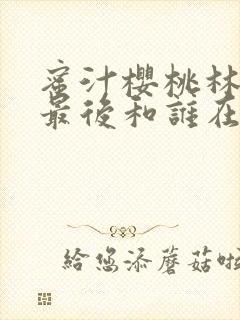 蜜汁櫻桃林
最後和誰在
給您添蘑菇啦